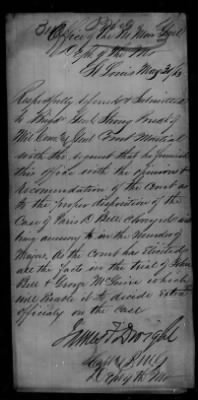 Office of the Pro Mar Genl
Dept of the Mo
St Louis May 31/63
Respectfully referred & submitted
to Major Genl Strong Presdt of
Mil Com & Genl Court Martial
with the request that he furnish
this office with the opinion &
Recomendation of the Court as
to the proper disposition of the
Case of Paris D Bell charged as
being accessory to in the Murder of
Majors. As the Court has elicited
all the facts in the trial of John
Bell & George McGuire which
will enable it to decide extra
officialy on the Case
James F Dwight
Capt &
Dept of the Mo